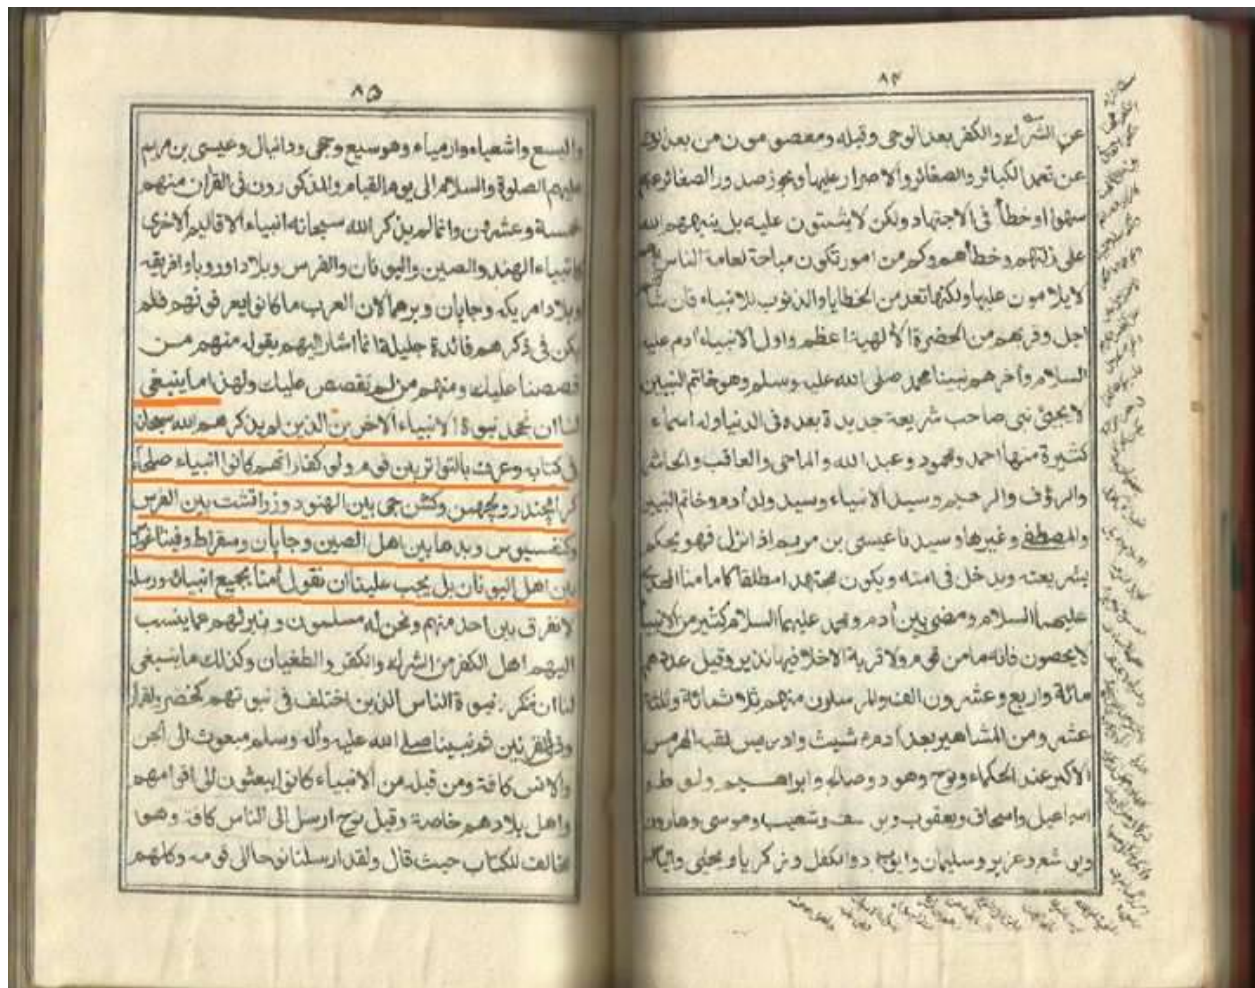 ٨٤
عن الشرك والكفر بعد الوحي وقبله ومعصومون من بعد الوحي
عن تعمد الكبائر والصغائر والاصرار عليها ويجوز صدور الصغائر عنهم
سهوا او خطأ في الاجتهاد ولكن لا يثبتون عليه بل ينبههم الله
على زلتهم وخطأهم وكم من امور تكون مباحة لعامة الناس
لا يلامون عليها ولكنها تعد من الخطايا والذنوب للانبياء فان شأنهم
اجل وقربهم من الحضرة الالهية اعظم واول الانبياء ادم عليه
السلام واخرهم نبينا محمد صلى الله عليه وسلم وهو خاتم النبيين
لا يجيئ نبي صاحب شريعة جديدة بعده في الدنيا وله اسماء
كثيرة منها احمد ومحمود وعبد الله والماحي والعاقب والحاشر
والرؤف والرحيم وسيد الانبياء وسيد ولد ادم وخاتم النبيين
والمصطفى وغيرها وسيدنا عيسى بن مريم اذا نزل فهو يحكم
بشريعته ويدخل في امته ويكون مجتهدا مطلقا كامامنا المهدي
عليهما السلام ومضى بين ادم ومحمد عليهما السلام كثير من الانبياء
لا يحصون فانه ما من قوم ولا قرية الا خلا فيها نذير وقيل عددهم
مائة واربع وعشرون الف والمرسلون منهم ثلاثمائة وثلثة
عشر ومن المشاهير بعد ادم شيث وادريس لقب الهرمس
الاكبر عند الحكماء ونوح وهود وصالح وابراهيم ولوط و
اسماعيل واسحاق ويعقوب ويوسف وشعيب وموسى وهارون
ويوشع وعزير وسليمان وايوب وذوالكفل وزكريا ويحيى والياس
٨٥
واليسع واشعياء وارمياء وهوسيع وحجى ودانيال وعيسى بن مريم
عليهم الصلوة والسلام الى يوم القيام والمذكورون في القرآن منهم
خمسة وعشرون وانما لم يذكر الله سبحانه انبياء الاقاليم الاخرى
كانبياء الهند والصين واليونان والفرس وبلاد اوروبا وافريقه
وبلاد امريكه وجاپان وبرهما لان العرب ما كانوا يعرفونهم فلم
يكن في ذكرهم فائدة جليلة انما اشار اليهم بقوله منهم من
قصصنا عليك ومنهم من لم نقصص عليك ولهذا ما ينبغي
لنا ان نجحد نبوة الانبياء الاخرين الذين لم يذكرهم الله سبحانه
في كتابه وعرف بالتواتر بين قوم ولو كفار انهم كانوا انبياء صلحاء
كرامچندر ولچهمن وكشن جي بين الهنود وزراتشت بين الفرس
وكنفسيوس وبدها بين اهل الصين وجاپان وسقراط وفيثاغورس
بين اهل اليونان بل يجب علينا ان نقول آمنا بجميع انبيائه ورسله
لا نفرق بين احد منهم ونحن له مسلمون ونبرئهم مما ينسب
اليهم اهل الكفر من الشرك والكفر والطغيان وكذلك ما ينبغي
لنا ان ننكر نبوة الناس الذين اختلف في نبوتهم كخضر ولقمان
وذي القرنين ثم نبينا صلى الله عليه وآله وسلم مبعوث الى الجن
والانس كافة ومن قبله من الانبياء كانوا يبعثون الى اقوامهم
واهل بلادهم خاصة وقيل نوح ارسل الى الناس كافة وهو
مخالف للكتاب حيث قال ولقد ارسلنا نوحا الى قومه وكلهم